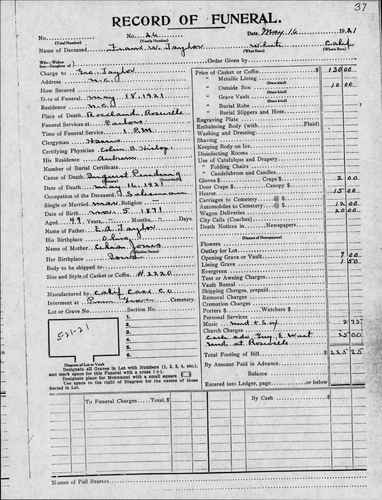 37
RECORD OF FUNERAL.
No. No. 26 Date, May 16 1921
(Total Number) (Yearly Number)
Name of Deceased, Frank W. Taylor White Calif
(What Race) (Where Born)
Wife—Widow
Son—Daughter of
Charge to Geo. Taylor
Address N.C.
How Secured
Date of Funeral May 18, 1921
Residence N.C.
Place of Death Roadland, Roseville
Funeral Services at Parlors
Time of Service 1 P.M.
Clergyman Harris
Certifying Physician
His Residence Auburn
Number of Burial Certificate
Cause of Death Inquest Pending
Date of Death May 16, 1921
Occupation of the Deceased Salesman
Single or Married Mar. Religion
Date of Birth 5, 1871
Aged 49 Years, Months, Days
Name of Father E.A. Taylor
His Birthplace Ohio
Name of Mother Jones
(Maiden Name)
Her Birthplace Iowa
Body to be shipped to
Size and Style of Casket or Coffin 2220
Manufactured by Calif Cask. Co
Interment at Cemetery.
Lot or Grave No. Section No.
5-21-21
1.
2.
3.
4.
5.
6.
7.
8.
Diagram of Lot or Vault
Designate all Graves in Lot with Numbers (1, 2, 3, 4, etc.),
and mark space for this Funeral with a cross (+).
Designate place for Monument with a small square □.
Use space to the right of Diagram for the names of those
buried in Lot.
Order Given by
Price of Casket or Coffin $ 130 00
" Metallic Lining
(State Kind)
" Outside Box 10 00
" Grave Vault
(State Kind)
" Burial Robe
" Burial Slippers and Hose
Engraving Plate
Embalming Body (with Fluid)
Washing and Dressing
Shaving
Keeping Body on Ice
Disinfecting Rooms
Use of Catafalque and Drapery
" Folding Chairs
" Candelabrum and Candles
Gloves $ Crape $ 2 00
Door Crape $ Canopy $
Hearse 15 00
Carriages to Cemetery @ $
Automobiles to Cemetery @ $ 12 00
Wagon Deliveries 20 00
City Calls
Death Notices in Newspapers
Flowers
Outlay for Lot
Opening Grave or Vault 7 00
Lining Grave 1 50
Evergreen
Tent or Awning Charges
Vault Rental
Shipping Charges, prepaid
Removal Charges
Cremation Charges
Porters $ Watchers $
Personal Services
Music 2 75
Church Charges
Cash adv. 25 00
at Roseville
Total Footing of Bill $ 225 25
By Amount Paid in Advance
Balance
Entered into Ledger, page or below
To Funeral Charges, $ By Cash $
Names of Pall Bearers.